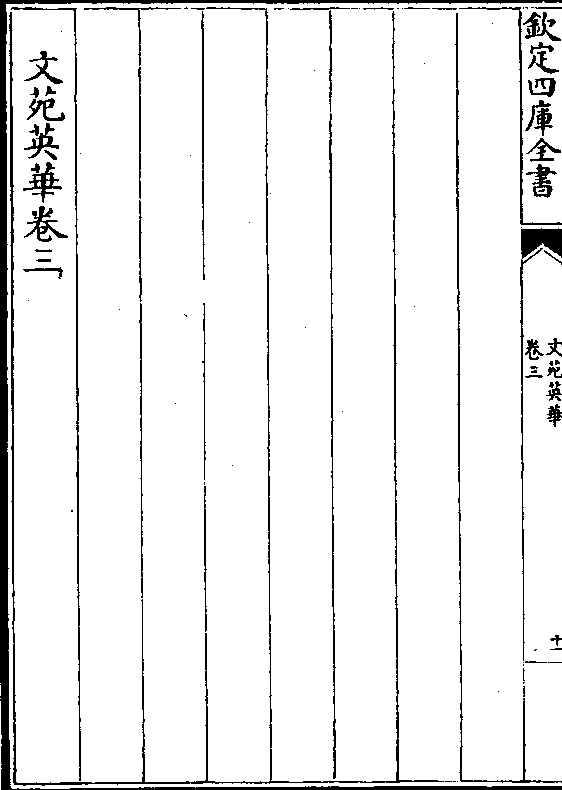 欽定四庫全書
文苑英華
卷三
十一
文苑英華卷三